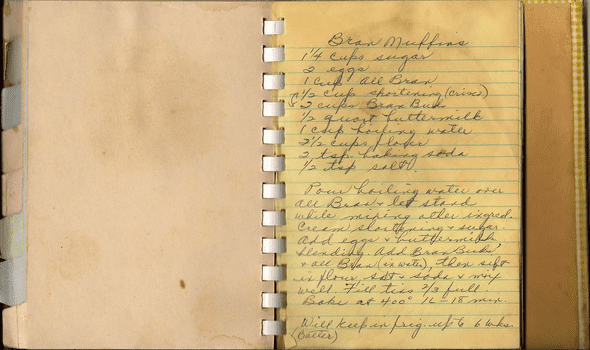 Bran Muffins
1 1/4 cups sugar
2 eggs
1 cup All Bran
1/2 cup shortening (crisco)
2 cups Bran Buds
1/2 quart buttermilk
1 cup boiling water
2 1/2 cups flour
2 tsp baking soda
1/2 tsp salt.
Pour boiling water over
All Bran & let stand
while mixing other ingred.
Cream shortening & sugar.
Add eggs & buttermilk
blending. Add Bran Buds
& All Bran (in water), then sift
in flour, salt & soda & mix
well. Fill tins 2/3 full
Bake at 400° 16-18 min.
Will keep in frig. up to 6 wks.
(Batter)